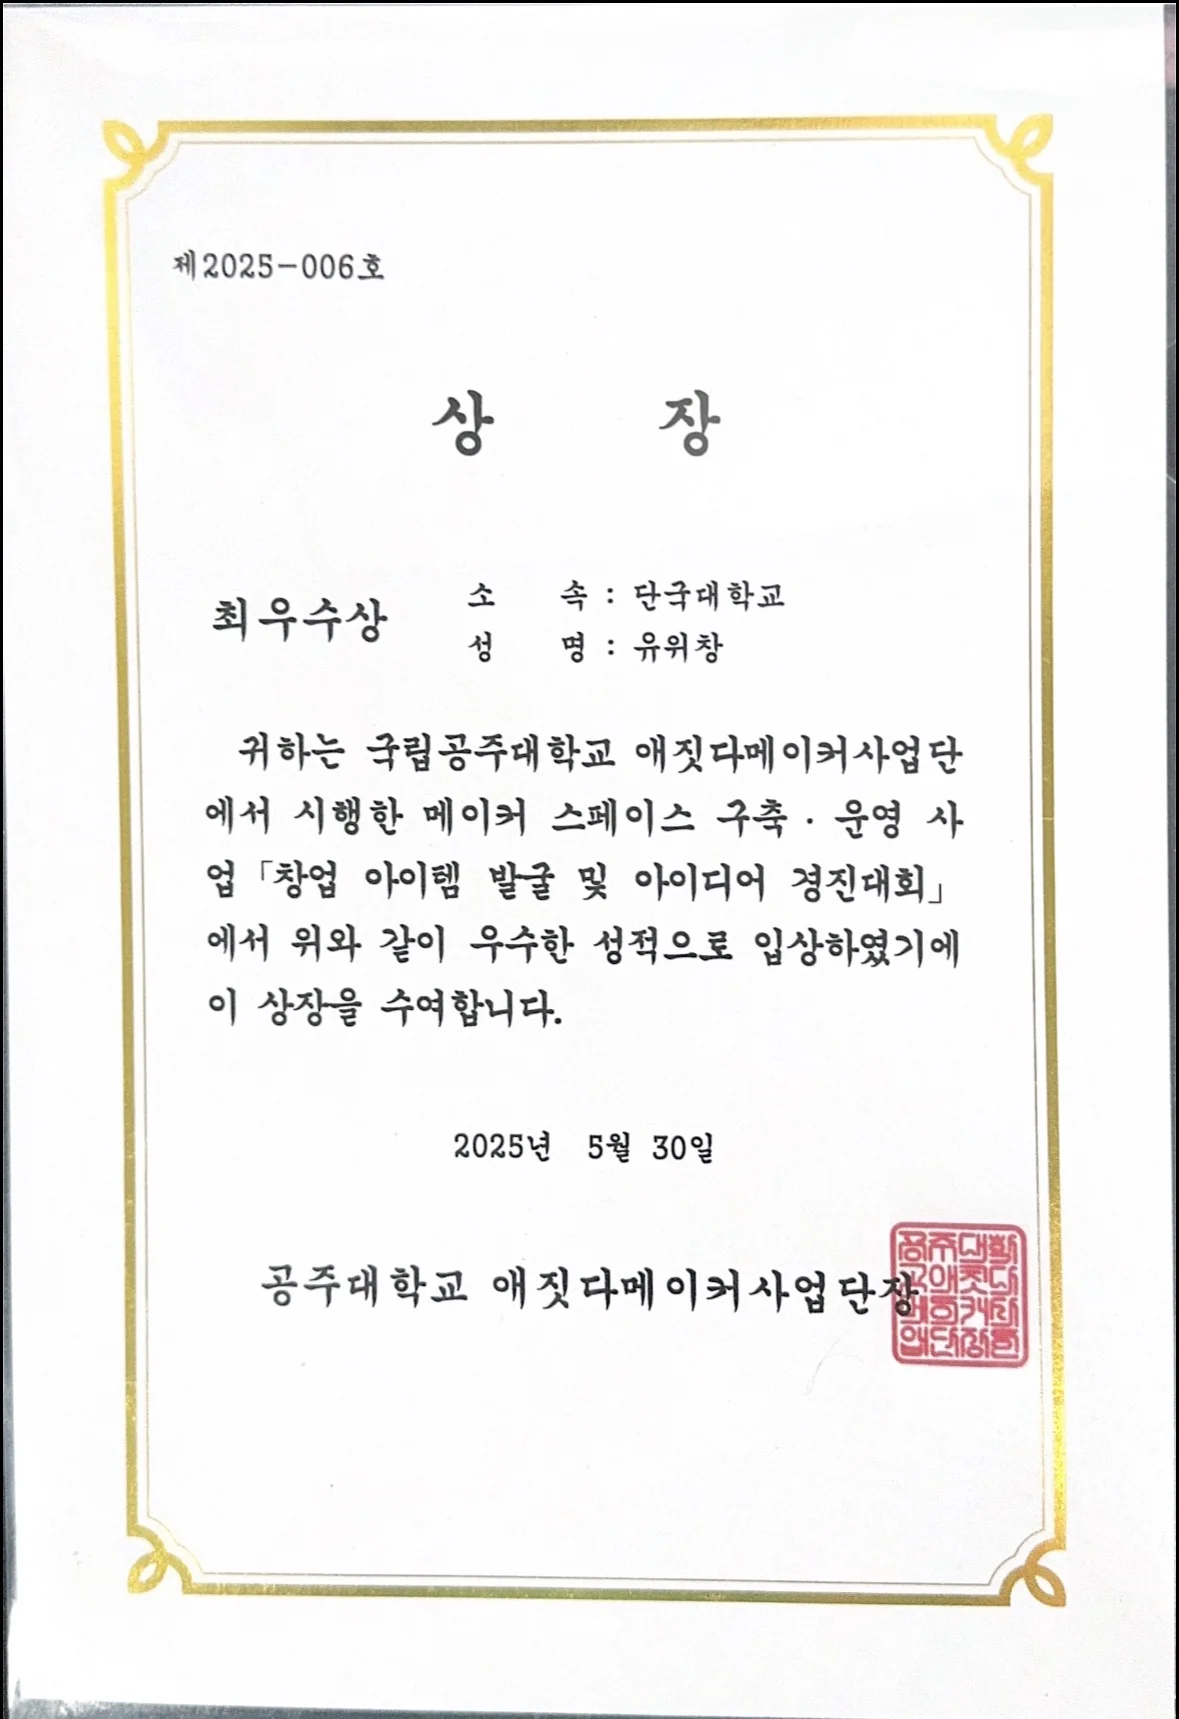 제2025-006호
상 장
최우수상
소 속 : 단국대학교
성 명 : 유위창
귀하는 국립공주대학교 애짓다메이커사업단
에서 시행한 메이커 스페이스 구축·운영 사
업「창업 아이템 발굴 및 아이디어 경진대회」
에서 위와 같이 우수한 성적으로 입상하였기에
이 상장을 수여합니다.
2025년 5월 30일
공주대학교 애짓다메이커사업단장